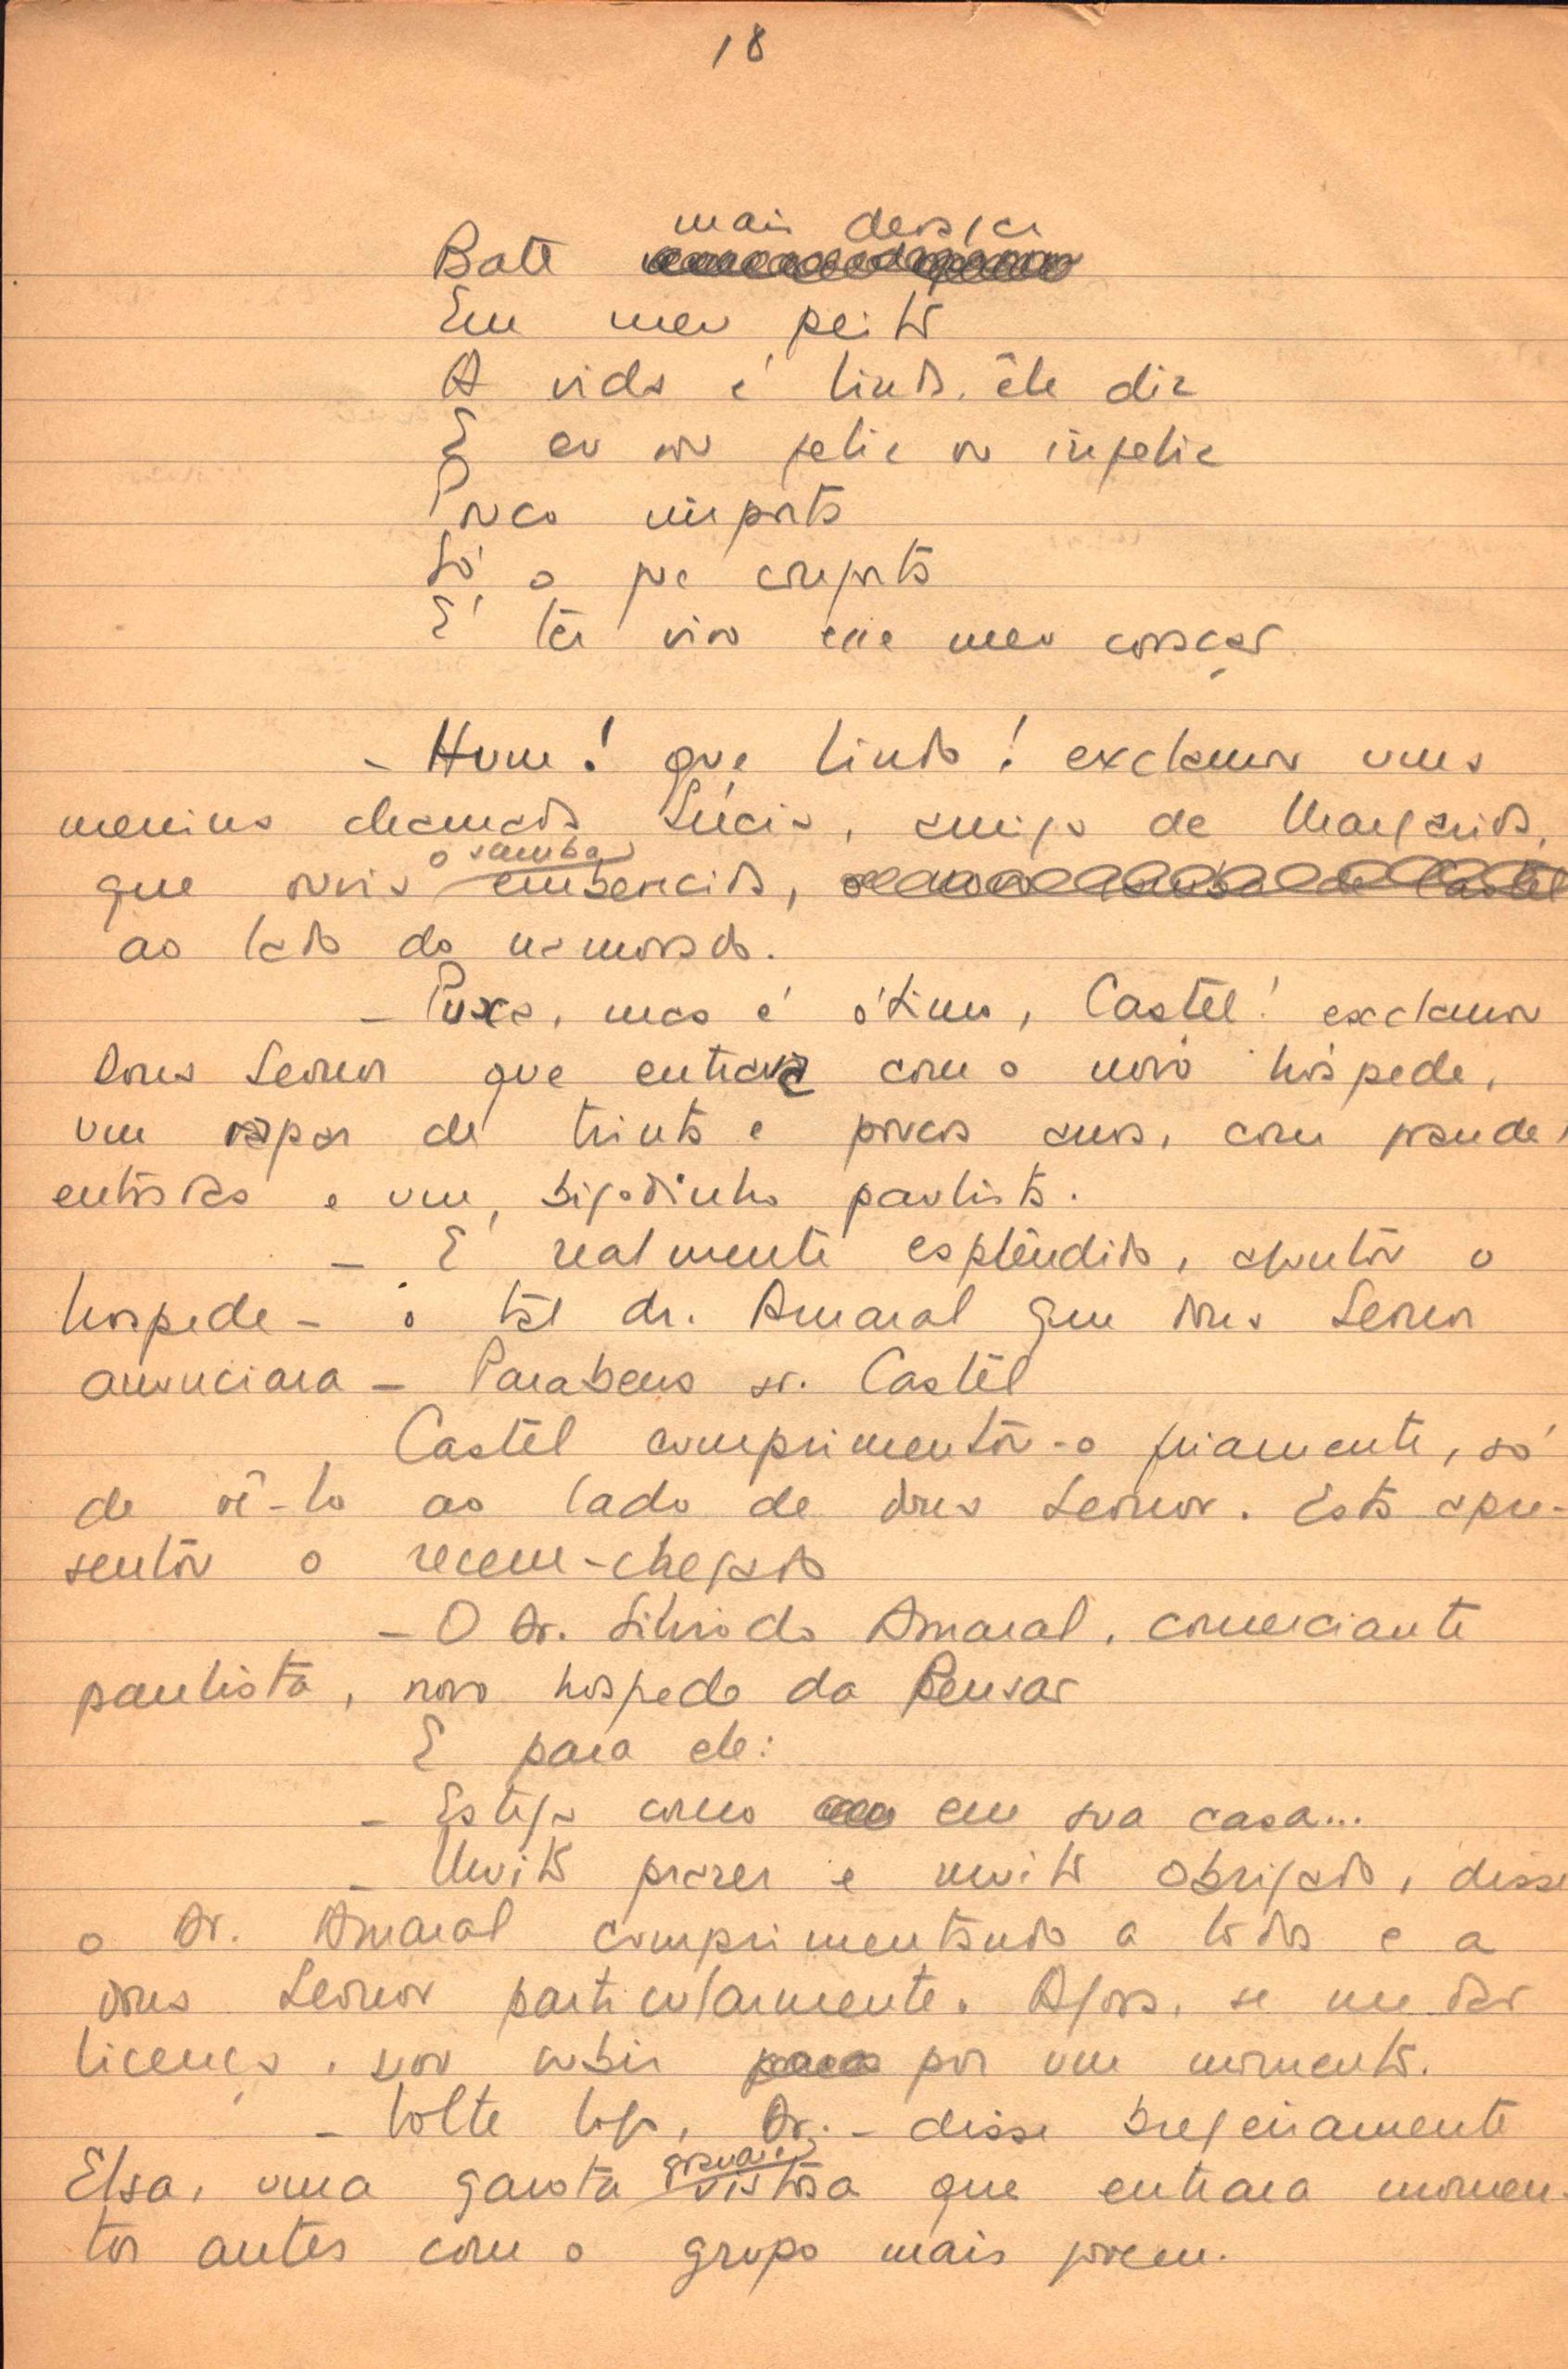 18
mais
Bate
Em meu peito
A vida é linda, êle diz
E eu sou feliz ou infeliz
Pouco importa
Só o que conforta
É ter vivo em meu coração
- Hum! que lindo! exclamou uma
menina chamada Lúcia, amiga de Margarida,
o samba
que ouvia embevecida,
ao lado do namorado.
- Puxa, mas é ótimo, Castel! exclamou
Dona Leonor que entrava com o novo hóspede,
um rapaz de trinta e poucos anos, com grandes
entradas e um bigodinho paulista.
- É realmente esplêndido, ajuntou o
hospede - o tal dr. Amaral que dona Leonor
anunciara - Parabens sr. Castel
Castel cumprimentou-o friamente, só
de vê-lo ao lado de dona Leonor. Esta apre-
sentou o recem-chegado
- O Dr. Silvio do Amaral, comerciante
paulista, novo hospede da Pensão
E para ele:
- Esteja como em sua casa...
- Muito prazer e muito obrigado, disse
o Dr. Amaral cumprimentando a todos e a
dona Leonor particularmente. Agora, se me dão
licença, vou subir por um momento.
- Volte logo, Dr. - disse brejeiramente
Elsa, uma garota vistosa que entrara momen-
tos antes com o grupo mais jovem.